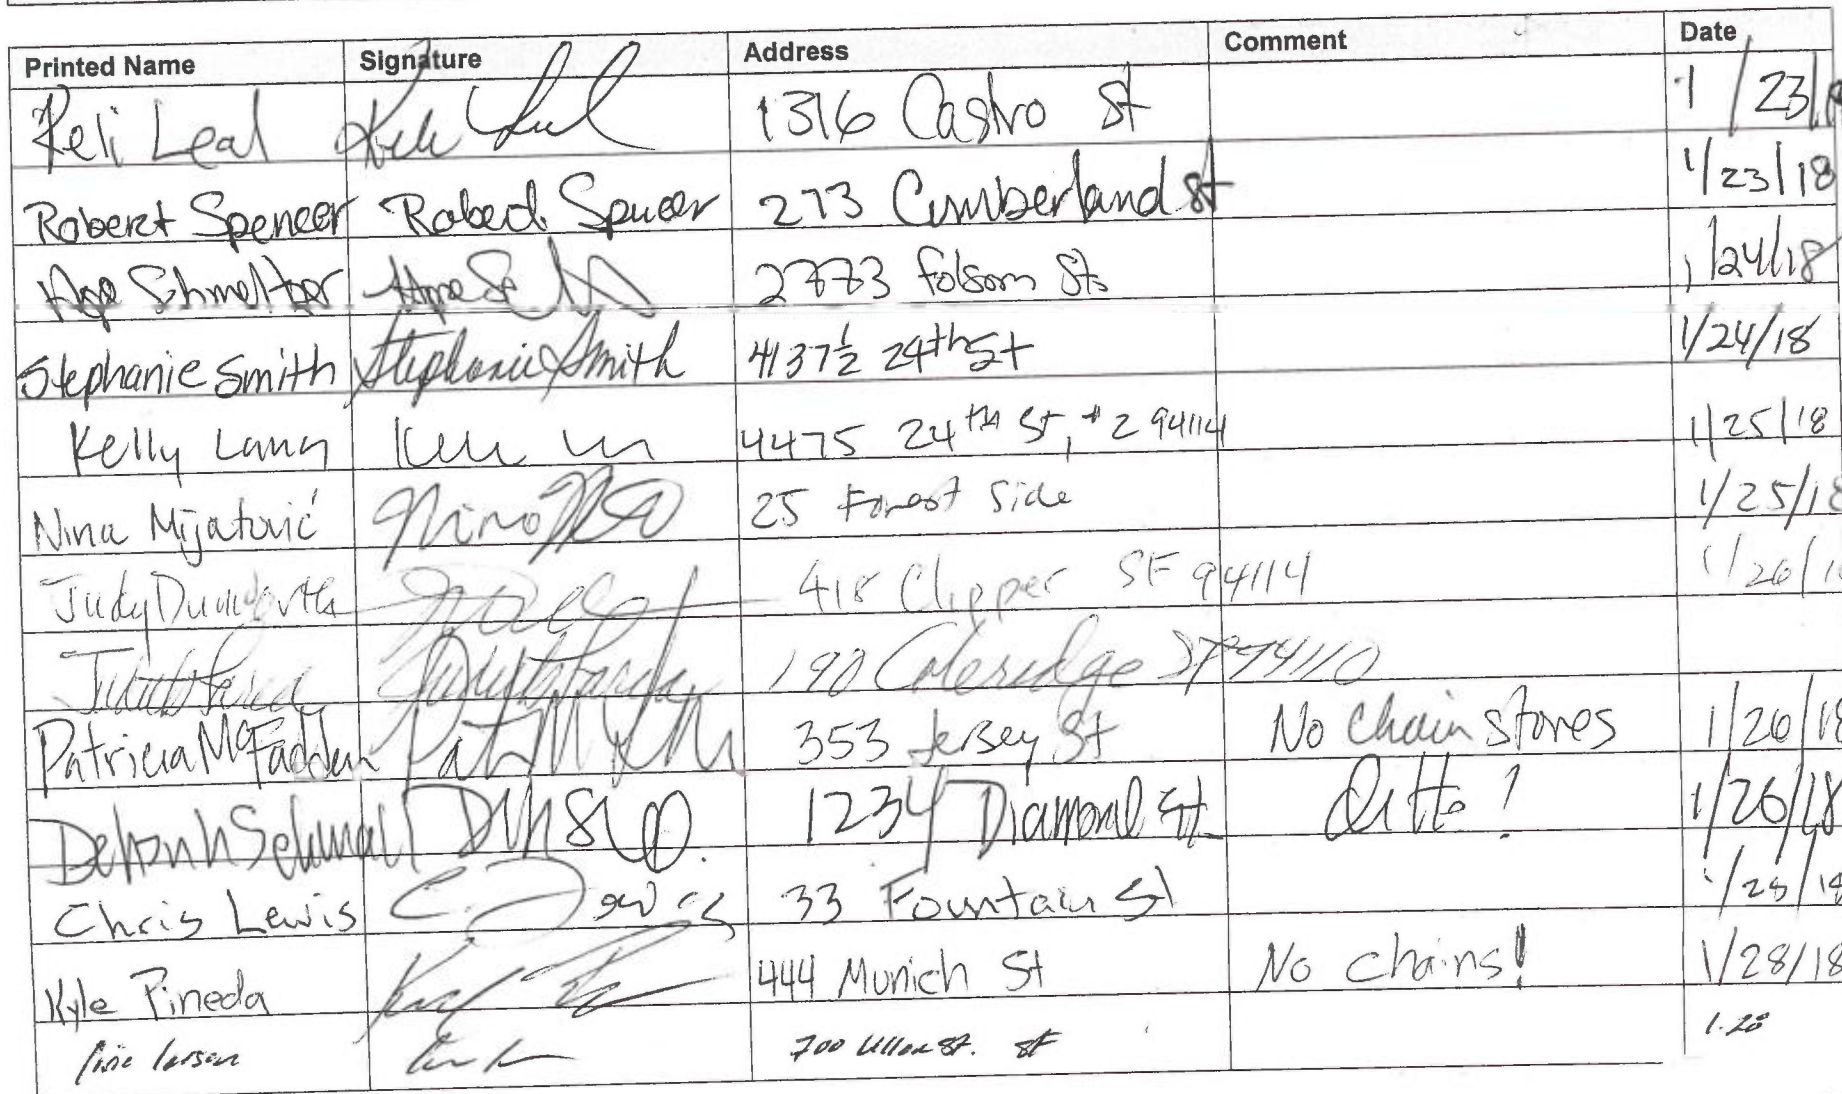 Printed Name Signature Address Comment Date
Keli Leal 1316 Castro St 1/23/
Robert Spencer Robert Spencer 273 Cumberland St 1/23/18
Schmeltzer 2773 Folsom St 1/24/18
Stephanie Smith Stephanie Smith 4137½ 24th St 1/24/18
Kelly 4475 24th St, #2 94114 1/25/18
Nina Mijatović Nina 25 Forest Side 1/25/18
Judy 418 Clipper SF 94114 1/26/1
Judith 190 Coleridge SF 94110
Patricia McFadden 353 Jersey St No Chain stores 1/26/18
Deborah 1234 Diamond St. Ditto! 1/26/18
Chris Lewis C. Lewis 33 Fountain St 1/28/18
Kyle Pineda 444 Munich St No chains! 1/28/18
larson 700 St. SF 1.28